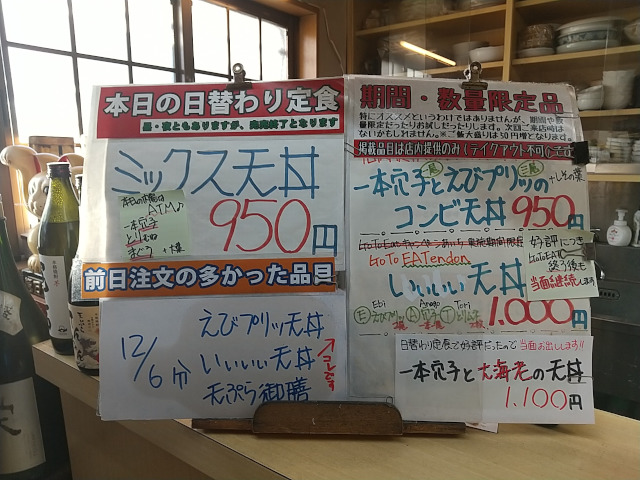 本日の日替わり定食
昼・夜ともありますが、完売終了となります
ミックス天丼
本日の内容は
ATM♪
一本穴子
とりむね
まぐろ
+大葉
950円
前日注文の多かった品目
12/6分
えびプリッ天丼
いいいい天丼
天ぷら御膳
コレです
期間・数量限定品
特にオススメというわけではありませんが、期間や数
量限定だったりお試しだったりします。次回ご来店時は
ないかもしれません。※ご飯大盛りは50円増となります。
掲載品目は店内提供のみ(テイクアウト不可)です
一本穴子とえびプリッの
+しその葉
コンビ天丼 950円
GoTo EATendon
好評につき
GoToEAT
終了後も
当面継続します
いいいい天丼
Ebi Anago Tori
E えびプリッ 2尾 A 穴子 一本 T とりむね 2枚
1.000円
日替わり定食で好評だったので 当面お出しします!!
一本穴子と大海老の天丼
1.100円